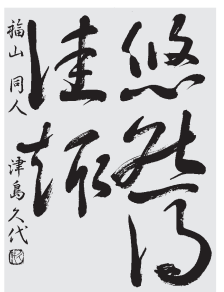 悠然得
佳趣
福山 同人 津島久代